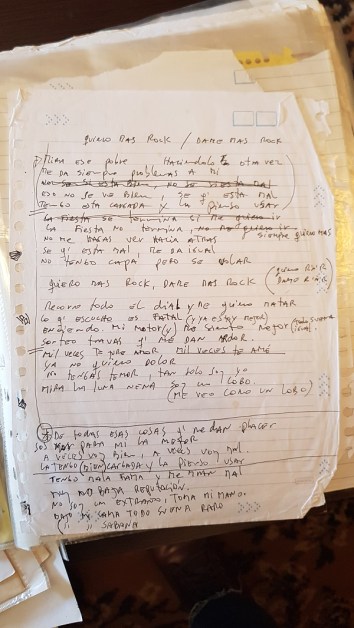 QUIERO MAS ROCK / DAME MAS ROCK
MIRA ESE POBRE HACIENDOLO OTRA VEZ
ME DA SIEMPRE PROBLEMAS A MI
NO SE SI ESTA BIEN, NO SE SI ESTA MAL
ESO NO SE VE BIEN, SE Q' ESTA MAL
TENGO ESTA CARGADA Y LA PIENSO USAR
LA FIESTA SE TERMINA SI ME QUIERO IR
LA FIESTA NO TERMINA, NO ME QUIERO IR Y SIEMPRE QUIERO MAS
NO ME HAGAS VER HACIA ATRAS
SE Q' ESTA MAL, ME DA IGUAL
NO TENGO CAPA PERO SE VOLAR
QUIERO MAS ROCK, DAME MAS ROCK (QUIERO R'N'R DAME R'N'R)
RECORRO TODO EL DIAL Y ME QUIERO MATAR
LO Q' ESCUCHO ES FATAL (Y YA ESTOY MEJOR)
ENCIENDO MI MOTOR (Y) ME SIENTO MEJOR
SORTEO TRAVAS Y' ME DAN ARDOR.
MIL VECES TE DIRE AMOR, MIL VECES TE AMÉ
YA NO QUIERO DOLOR
NO TENGAS TEMOR, TAN SOLO SOY YO
MIRA LA LUNA NENA SOY UN LOBO.
(ME VEO COMO UN LOBO)
DE TODAS ESAS COSAS Q' ME DAN PLACER
SOS PARA MI LA MEJOR
A VECES VOY BIEN, A VECES VOY MAL
LA TENGO (BIEN) CARGADA Y LA PIENSO USAR
TENGO MALA FAMA Y ME VAN MAL
MUY BAJA REPUTACION.
NO SOY UN EXTRAÑO, TOMA MI MANO.
CAMA TODO SUENA RARO
(" " SABIONA